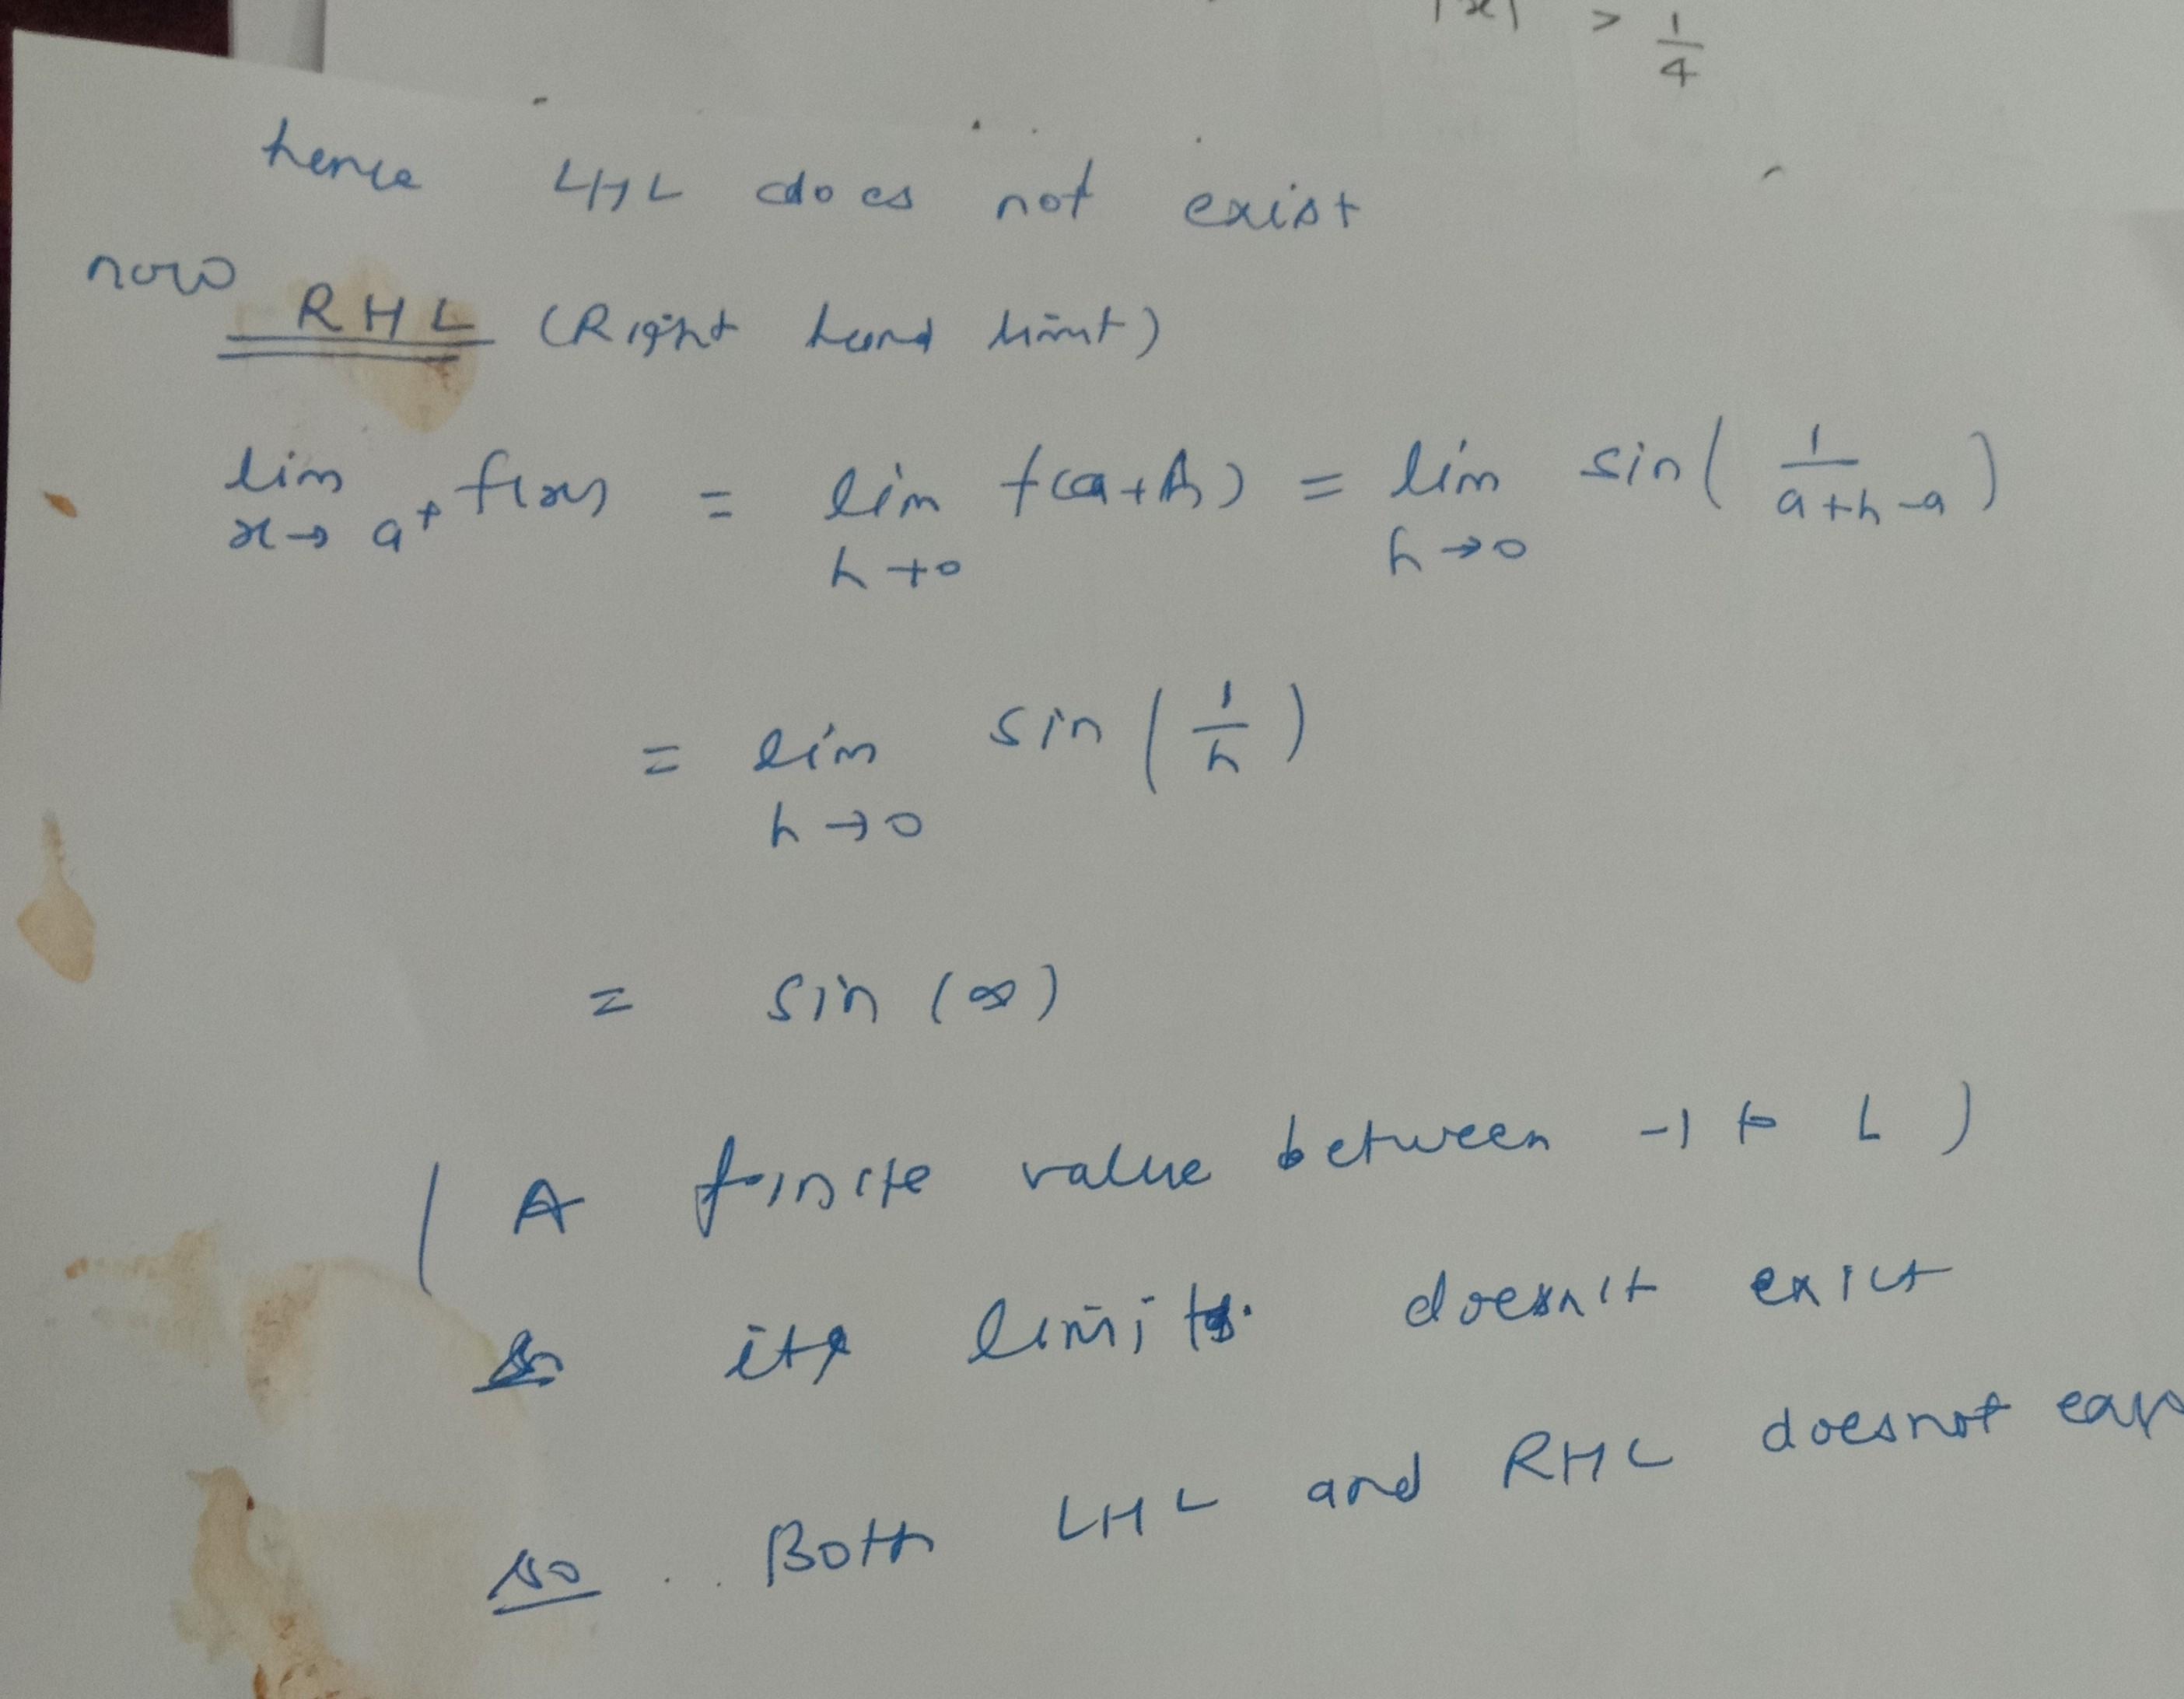 |x| > 1/4
hence LHL does not exist
now RHL (Right hand limit)
lim x→a⁺ f(x) = lim h→0 f(a+h) = lim h→0 sin(1/(a+h-a))
= lim h→0 sin(1/h)
= sin(∞)
(A finite value between -1 to 1)
so its limits doesn't exist
so Both LHL and RHL doesnot